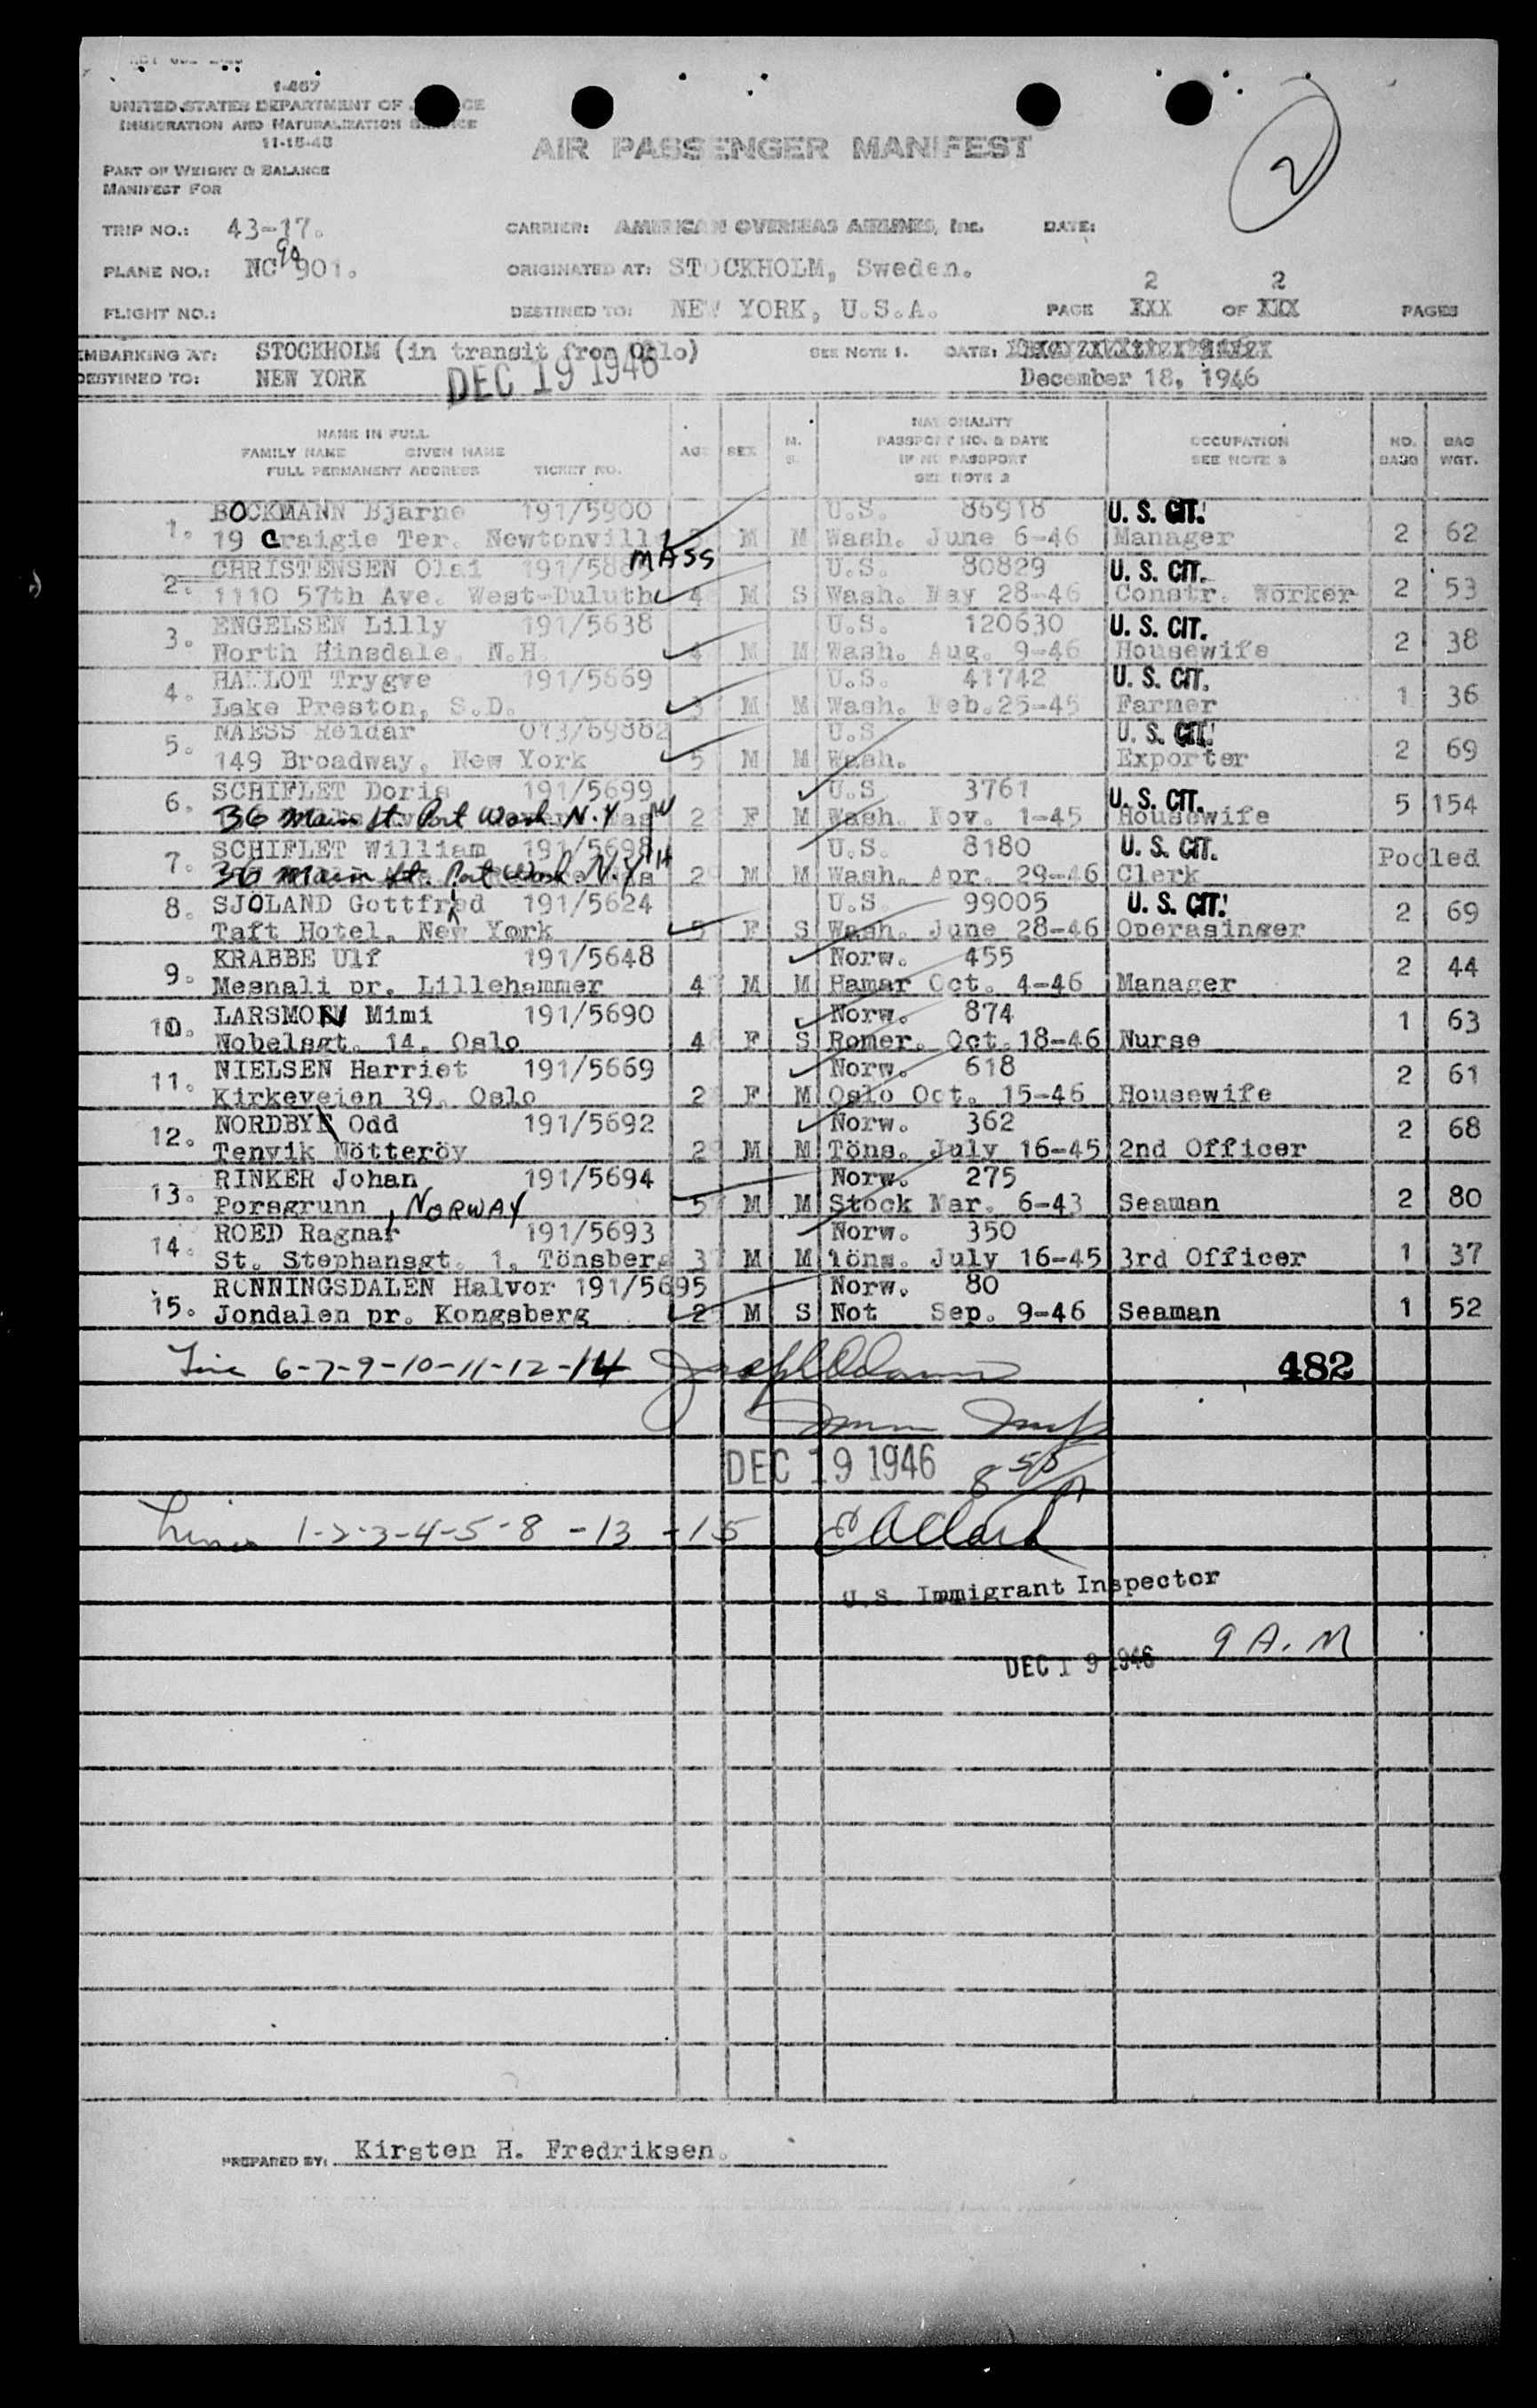 1-467
UNITED STATES DEPARTMENT OF
IMMIGRATION AND NATURALIZATION SERVICE
11-15-45
AIR PASSENGER MANIFEST
2
PART OF WEIGHT & BALANCE
MANIFEST FOR
TRIP NO.: 43-17. CARRIER: AMERICAN OVERSEAS AIRLINES, Inc. DATE:
PLANE NO.: NC 90 901. ORIGINATED AT: STOCKHOLM, Sweden.
FLIGHT NO.: DESTINED TO: NEW YORK, U.S.A. PAGE 2 XXX OF 2 XXX PAGES
EMBARKING AT: STOCKHOLM (in transit from Oslo) SEE NOTE 1. DATE:
DESTINED TO: NEW YORK DEC 19 1946 December 18, 1946
NAME IN FULL
FAMILY NAME GIVEN NAME
FULL PERMANENT ADDRESS TICKET NO.
AGE SEX M. S.
NATIONALITY
PASSPORT NO. & DATE
IF NO PASSPORT
SEE NOTE 2
OCCUPATION
SEE NOTE 3
NO. BAGG BAG WGT.
1. BOCKMANN Bjarne 191/5900 U.S. 86918 U. S. CIT.
19 Craigie Ter. Newtonvill MASS M M Wash. June 6-46 Manager 2 62
2. CHRISTENSEN Olai 191/5885 U.S. 80829 U. S. CIT.
1110 57th Ave. West-Duluth 4 M S Wash. May 28-46 Constr. Worker 2 53
3. ENGELSEN Lilly 191/5638 U.S. 120630 U. S. CIT.
North Hinsdale, N.H. 4 M M Wash. Aug. 9-46 Housewife 2 38
4. Trygve 191/5669 U.S. 41742 U. S. CIT.
Lake Preston, S.D. 3 M M Wash. Feb.25-45 Farmer 1 36
5. NAESS Reidar 013/69882 U.S. U. S. CIT.
149 Broadway, New York 5 M M Wash. Exporter 2 69
6. SCHIFLET Doris 191/5699 U.S. 3761 U. S. CIT.
36 Main St. Port Wash N.Y 2 F M Wash. Nov. 1-45 Housewife 5 154
7. SCHIFLET William 191/5698 U.S. 8180 U. S. CIT.
36 Main St. Port Wash. N.Y 2 M M Wash. Apr. 29-46 Clerk Pooled
8. SJOLAND Gottfried 191/5624 U.S. 99005 U. S. CIT.
Taft Hotel, New York 5 F S Wash. June 28-46 Operasinger 2 69
9. KRABBE Ulf 191/5648 Norw. 455
Mesnali pr. Lillehammer 4 M M Hamar Oct. 4-46 Manager 2 44
10. LARSMON Mimi 191/5690 Norw. 874
Nobelsgt. 14. Oslo 4 F S Romer. Oct.18-46 Nurse 1 63
11. NIELSEN Harriet 191/5669 Norw. 618
Kirkeveien 39. Oslo 2 F M Oslo Oct. 15-46 Housewife 2 61
12. NORDBY Odd 191/5692 Norw. 362
Tenvik Nötteröy 2 M M Töns. July 16-45 2nd Officer 2 68
13. RINKER Johan 191/5694 Norw. 275
Porsgrunn, NORWAY 5 M M Stock Mar. 6-43 Seaman 2 80
14. ROED Ragnar 191/5693 Norw. 350
St. Stephansgt. 1. Tönsberg 3 M M Töns. July 16-45 3rd Officer 1 37
15. RONNINGSDALEN Halvor 191/5695 Norw. 80
Jondalen pr. Kongsberg 2 M S Not Sep. 9-46 Seaman 1 52
Line 6-7-9-10-11-12-14 482
DEC 19 1946 8 50 A
Lines 1-2-3-4-5-8-13-15
U.S. Immigrant Inspector
DEC 19 1946 9 A.M
PREPARED BY: Kirsten H. Fredriksen.